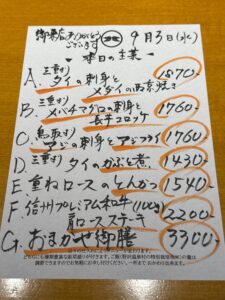 御来店ありがとうございます 9月3日(水)
本日の主菜
A. 三重産 タイの刺身と
メダイの西京焼き 1870-
B. 三重産 メバチマグロの刺身と
長芋コロッケ 1760-
C. 鳥取産 アジの刺身とアジフライ 1760-
D. 三重産 タイのかぶと煮 1430-
E 重ねロースのとんかつ 1540-
F 信州プレミアム和牛(100g)
肩ロースステーキ 2200-
G. おまかせ御膳 3300-